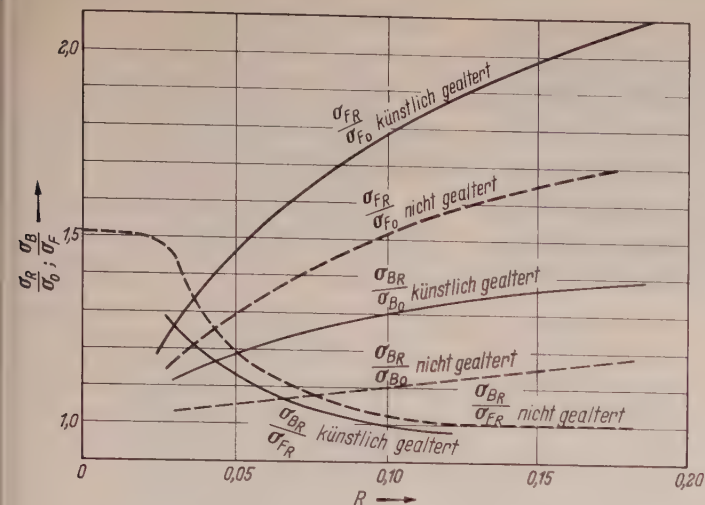 2,0
1,5
1,0
σR/σ0 ; σB/σF
σFR/σF0 künstlich gealtert
σFR/σF0 nicht gealtert
σBR/σB0 künstlich gealtert
σBR/σB0 nicht gealtert
σBR/σFR nicht gealtert
σBR/σFR künstlich gealtert
0
0,05
0,10
0,15
0,20
R